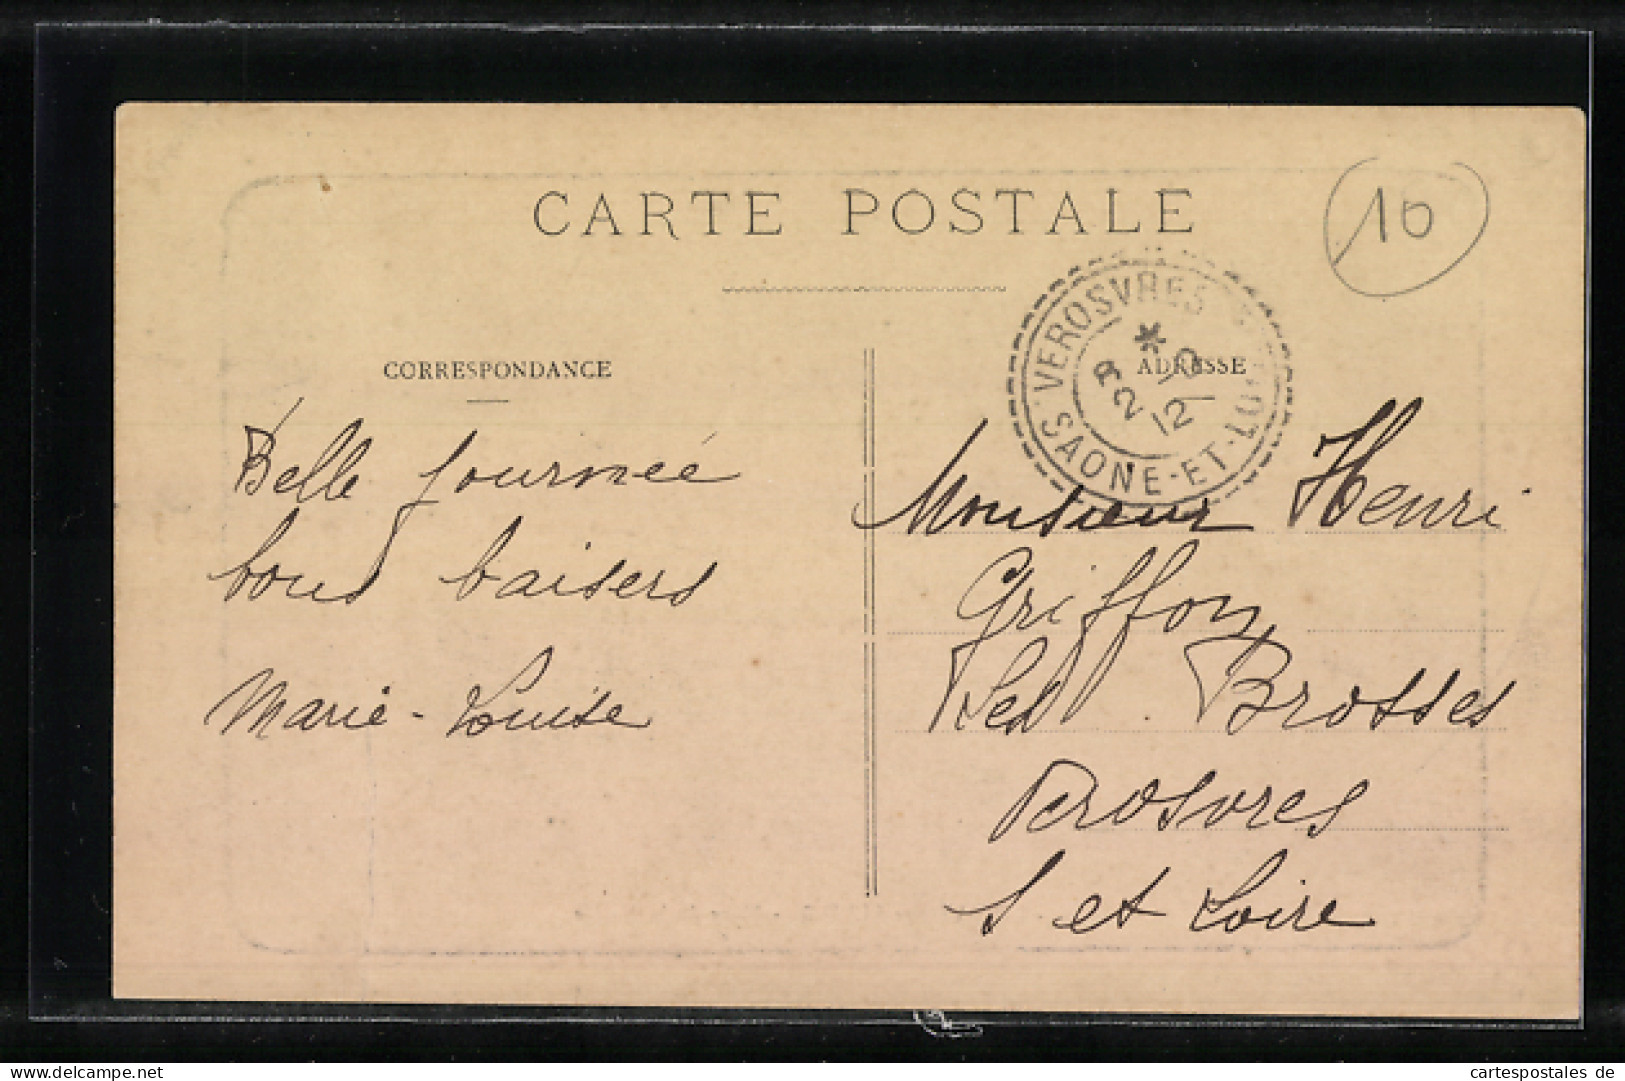 CARTE POSTALE
10
CORRESPONDANCE
ADRESSE
VEROSVRES
*
SAONE-ET-LOIRE
Belle journée
bons baisers
Marie-Louise
Monsieur Henri
Griffon
Les Brosses
Verosvres
S et Loire
www.delcampe.net
cartespostales de